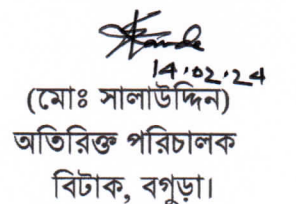 14.02.24
(মোঃ সালাউদ্দিন)
অতিরিক্ত পরিচালক
বিটাক, বগুড়া।